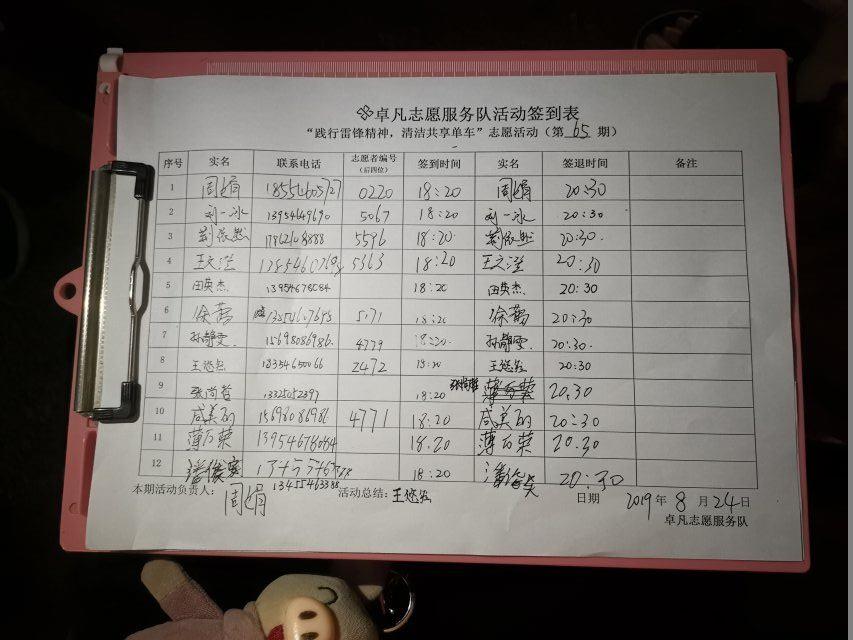 卓凡志愿服务队活动签到表
“践行雷锋精神，清洁共享单车”志愿活动（第 65 期）
序号 实名 联系电话 志愿者编号（后四位） 签到时间 实名 签退时间 备注
1 周娟 18554605727 0220 18:20 周娟 20:30
2 刘一冰 13954649690 5067 18:20 刘一冰 20:30
3 5596 18:20 20:30
4 王文滢 5363 18:20 王文滢 20:30
5 田英杰 13954678084 18:20 田英杰 20:30
6 徐蕾 5171 18:20 徐蕾 20:30
7 孙静雯 15698086986 4779 18:20 孙静雯 20:30
8 王悠然 18354650066 2472 18:20 王悠然 20:30
9 张尚哲 13325052397 18:20 20:30
10 咸美丽 15698086986 4771 18:20 咸美丽 20:30
11 薄百荣 13954678084 18:20 薄百荣 20:30
12 18:20 20:30
本期活动负责人： 周娟 13455463388 活动总结： 王悠然 日期 2019 年 8 月 24 日
卓凡志愿服务队